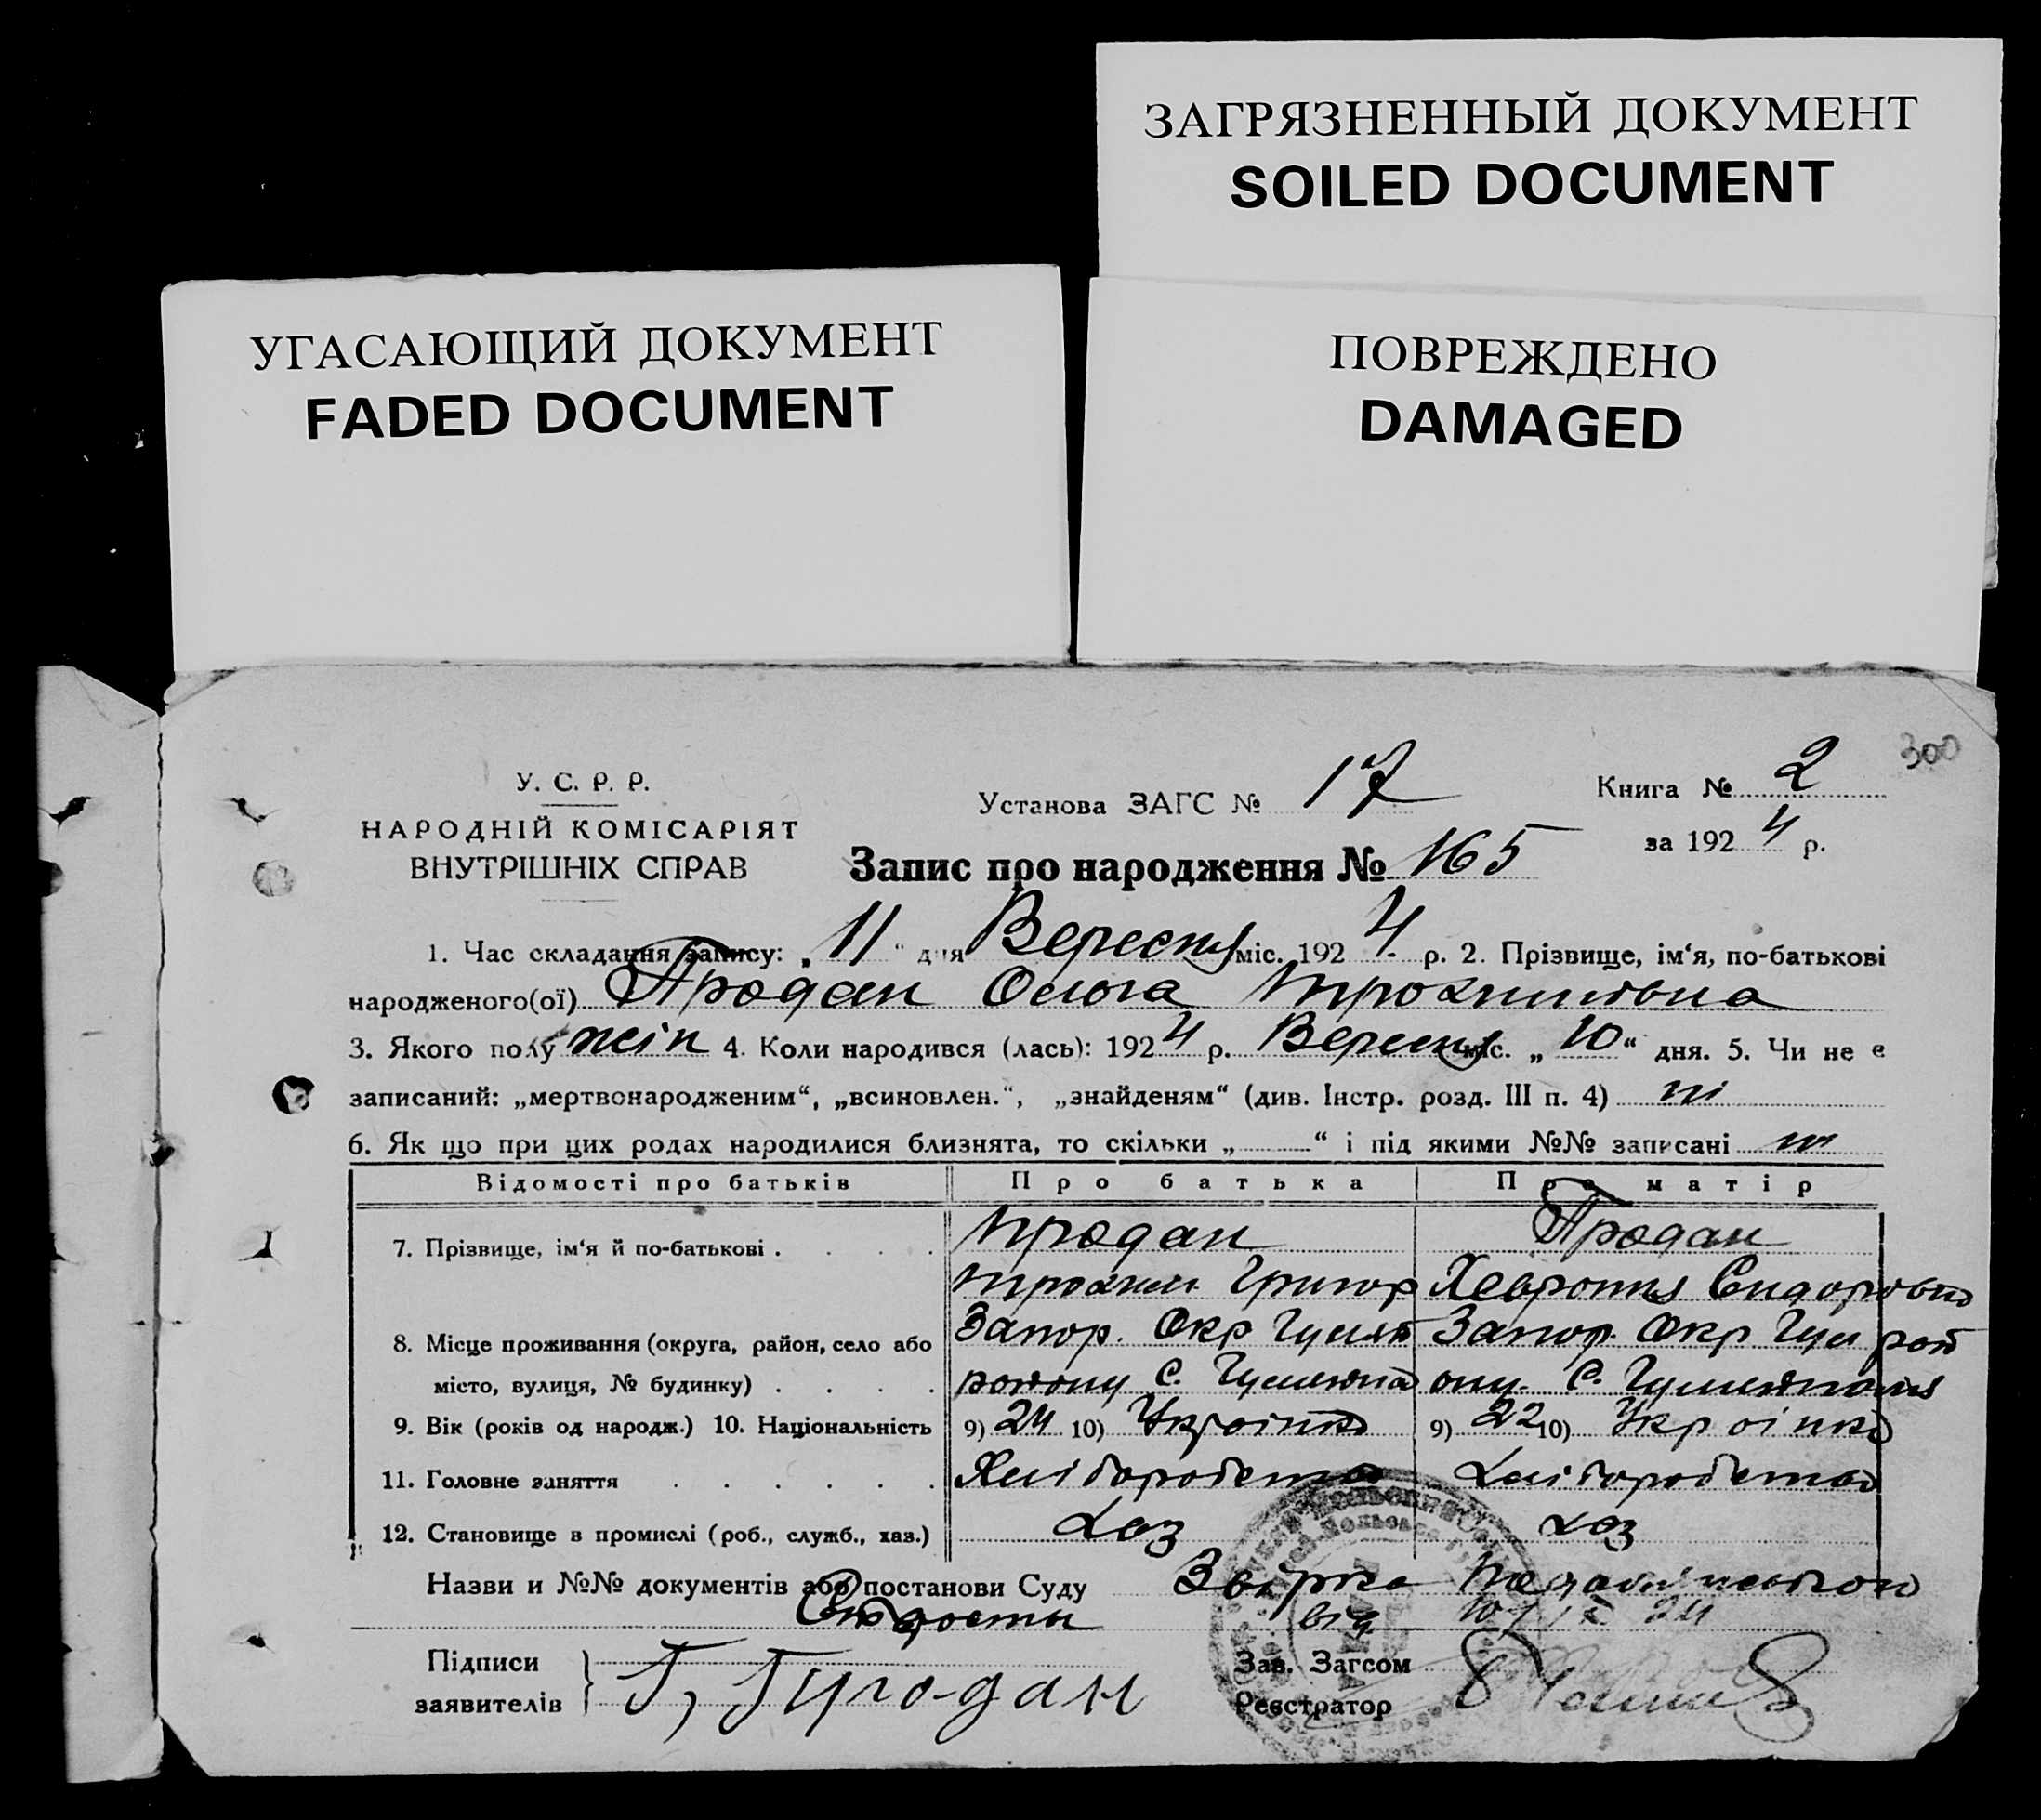 ЗАГРЯЗНЕННЫЙ ДОКУМЕНТ
SOILED DOCUMENT
УГАСАЮЩИЙ ДОКУМЕНТ
FADED DOCUMENT
ПОВРЕЖДЕНО
DAMAGED
300
У. С. Р. Р.
НАРОДНІЙ КОМІСАРІЯТ
ВНУТРІШНІХ СПРАВ
Установа ЗАГС № 17
Книга № 2
за 1924 р.
Запис про народження № 165
1. Час складання запису: „ 11 “ дня Вересня міс. 1924 р. 2. Прізвище, ім‘я, по-батькові
народженого(ої) Продан Ольга Трохимовна
3. Якого полу жін 4. Коли народився (лась): 1924 р. Вересня міс. „ 10 “ дня. 5. Чи не є
записаний: „мертвонародженим“, „всиновлен.“, „знайденям“ (див. Інстр. розд. III п. 4) ні
6. Як що при цих родах народилися близнята, то скільки „ “ і під якими №№ записані ні
Відомості про батьків Про батька Про матір
7. Прізвище, ім‘я й по-батькові . . . . Продан Продан
Трохим Григор Хевронія Сидоровна
8. Місце проживання (округа, район, село або Запор. Окр Гуляй Запор. Окр Гул рай
місто, вулиця, № будинку) . . . . району С. ону С.
9. Вік (років од народж.) 10. Національність 9) 24 10) 9) 22 10)
11. Головне заняття . . . . . . Хліборобство Хліборобство
12. Становище в промислі (роб., служб., хаз.) Хаз хаз
Назви и №№ документів або постанови Суду
від
Підписи
заявителів
Г, Продан
Зав. Загсом
Реєстратор